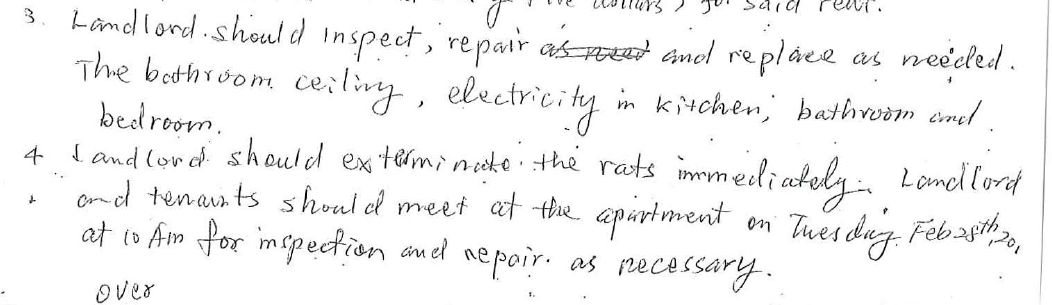 Five Dollars) for said rent.
3. Landlord should inspect, repair as need and replace as needed.
The bathroom ceiling, electricity in kitchen, bathroom and
bedroom.
4 Landlord should exterminate the rats immediately. Landlord
and tenants should meet at the apartment on Tuesday Feb 28th, 20,
at 10 Am for inspection and repair as necessary.
over